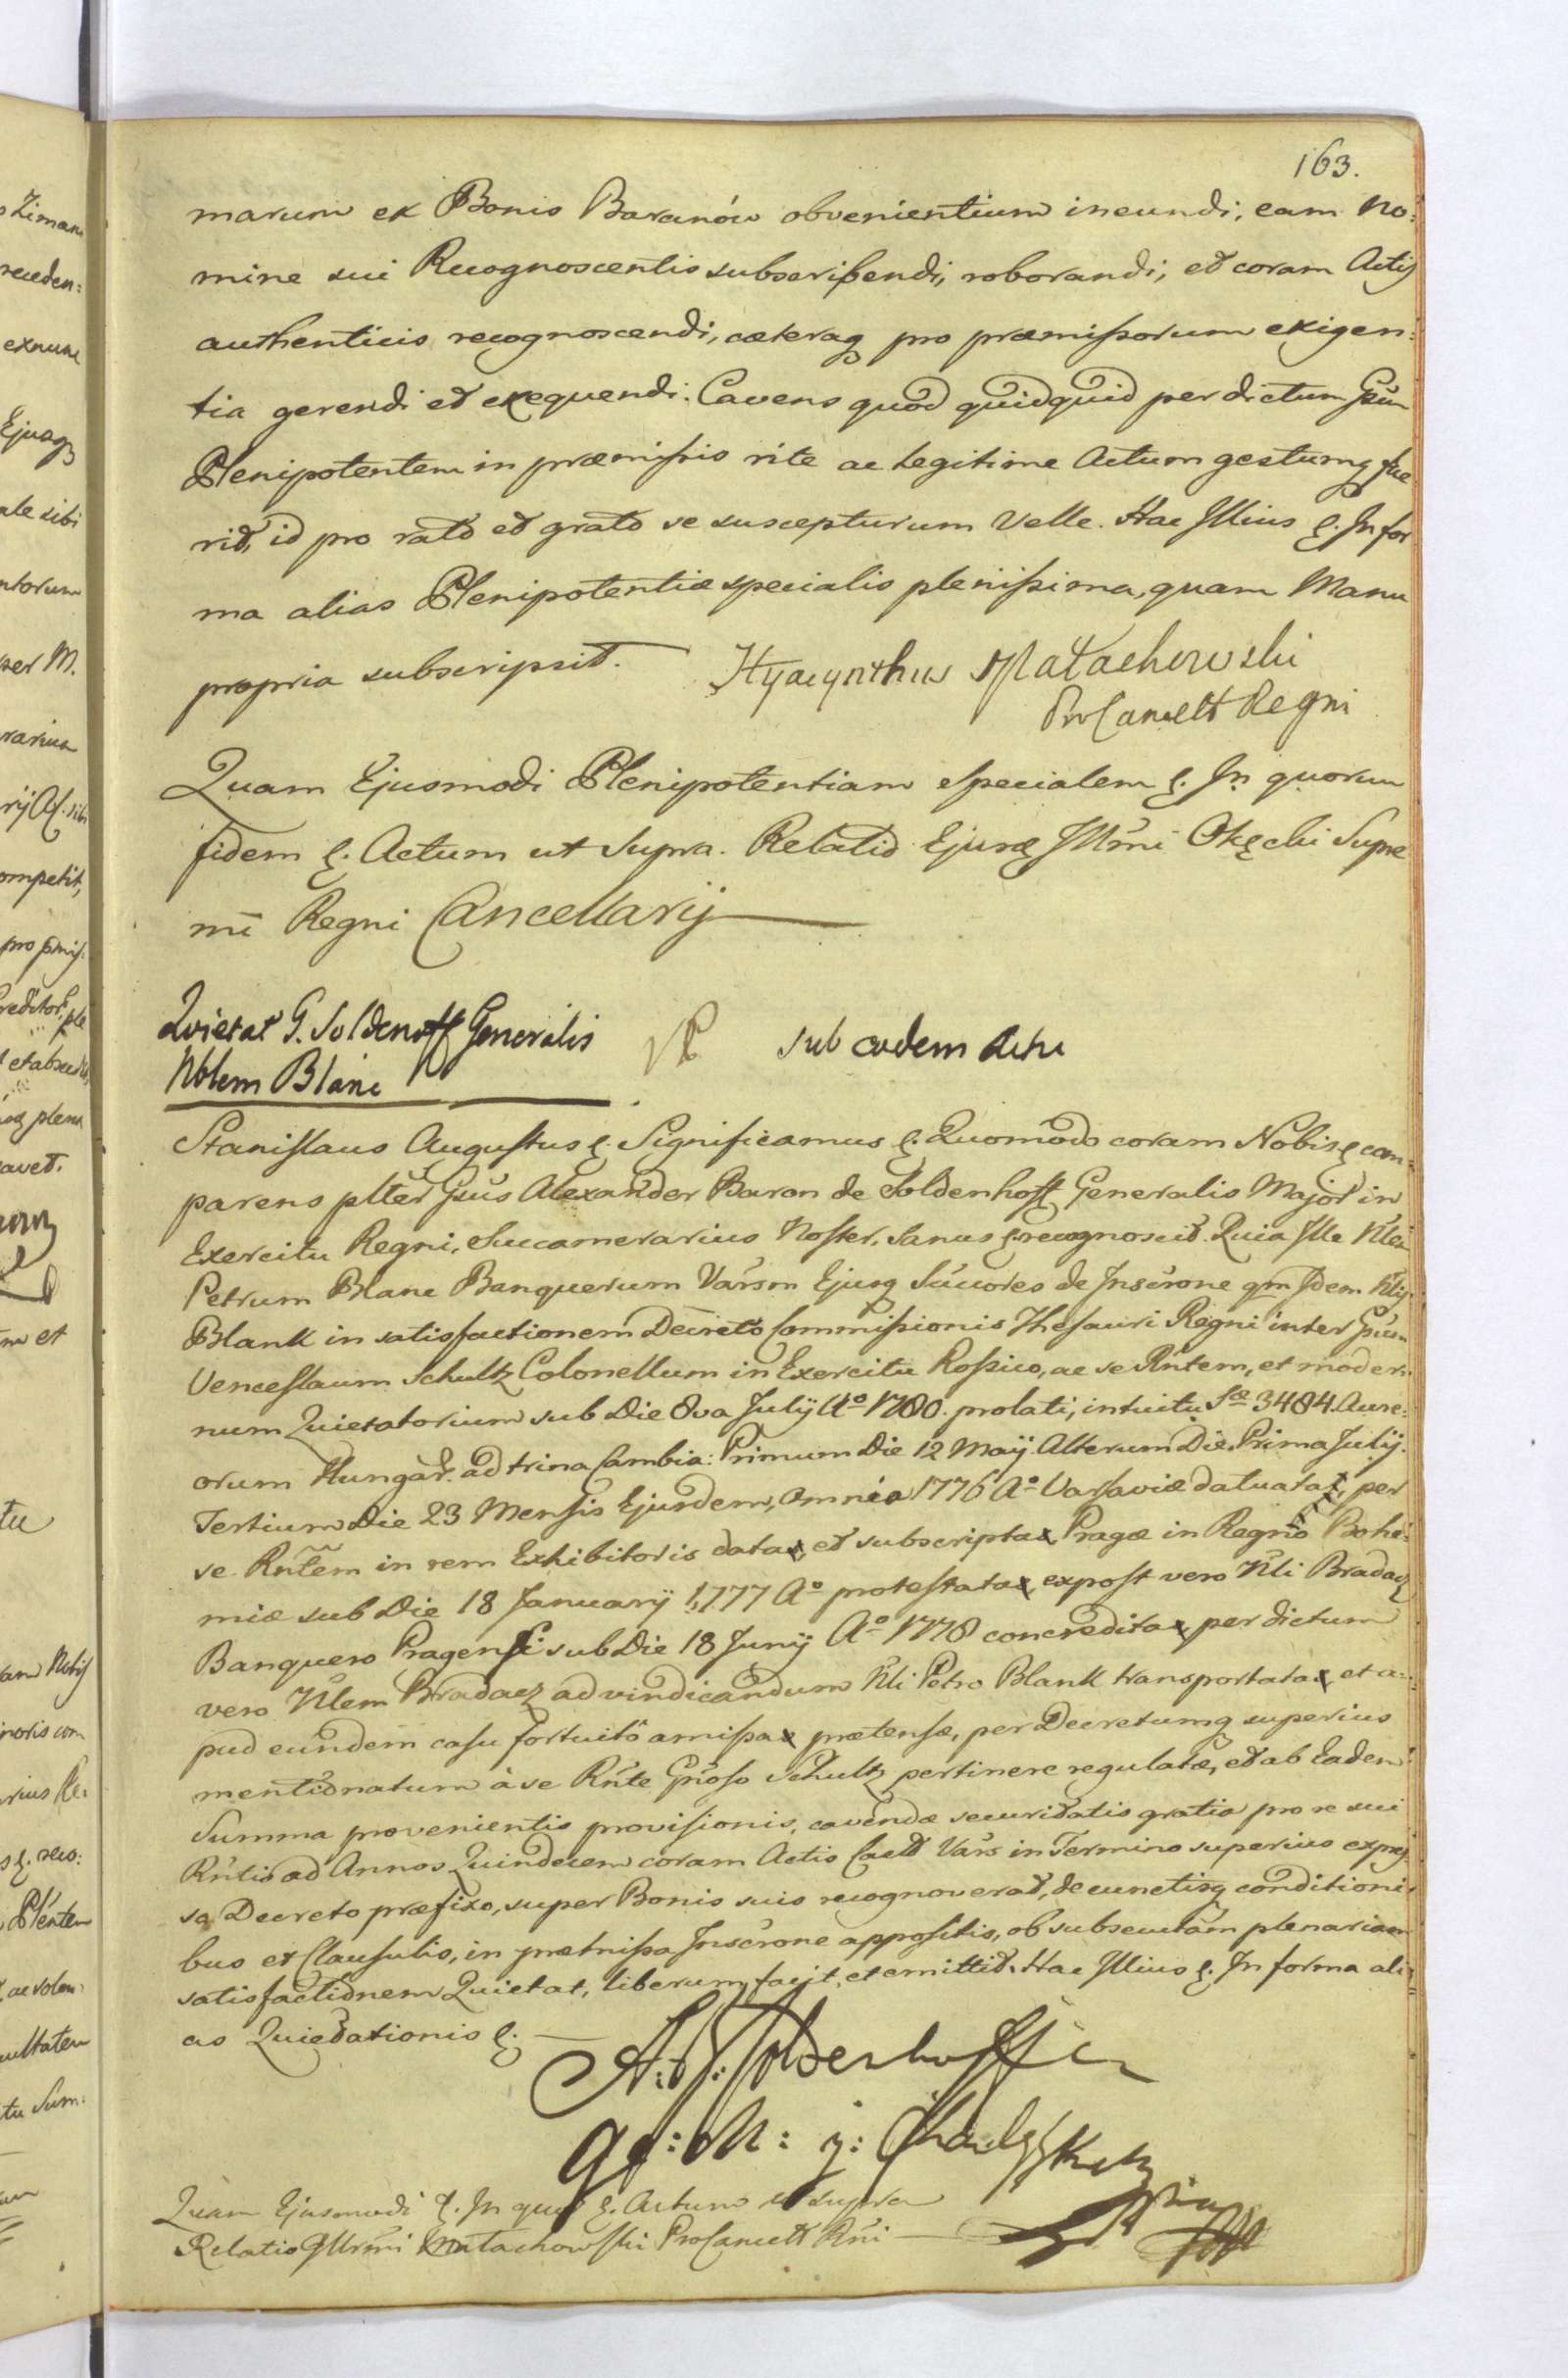 163.
marum ex Bonis Baranów obvenientium ineundi, eam No:
mine sui Recognoscentis subscribendi, roborandi, et coram Actis
authenticis recognoscendi, cæteraq pro præmissorum exigen:
tia gerendi et exequendi. Cavens quod quidquid per dictum Gsum
Plenipotentem in præmissis rite ac legitime Actum gestumq fue
rit, id pro rato et grato se suscepturum Velle. Hac Illius &. In for
ma alias Plenipotentiæ specialis plenissima, quam Manu
propria subscripsit. Hyacynthus Małachowski
ProCancell Regni
Quam Ejusmodi Plenipotentiam specialem &. In quorum
fidem &. Actum ut supra. Relatio Ejusd Illmi Okęcki Supre
mi Regni Cancellarij
Quietat G. Soldenoff Generalis
Nblem Blanc
sub eodem Actu
Stanislaus Augustus &. Significamus &. Quomodo coram Nobis & com:
parens plter Gsus Alexander Baron de Soldenhoff Generalis Major in
Exercitu Regni, Succamerarius Noster, Sanus & recognoscit. Quia Ille Nlem
Petrum Blanc Banquerum Varsm Ejusq Sucores de Inscrone qm Idem Nlis
Blank in satisfactionem Decreto Commissionis Thesauri Regni inter Gsum
Venceslaum Schultz Colonellum in Exercitu Rossico, ac se Rntem, et moder:
num Quietatorium sub Die 8va Julij Ao 1780. prolati, intuitu Sæ 3484. Aure:
orum Hungar. ad trina Cambia: Primum Die 12 Maij. Alterum Die Prima Julij.
Tertium Die 23 Mensis Ejusdem, omnia 1776 Ao Varsaviæ datuata, per
se Rntem in rem Exhibitoris data, et subscripta Pragæ in Regno Bohe:
miæ sub Die 18 January 1777 Ao protestata expost vero Nli Bradacz
Banquero Pragensi sub Die 18 Junij Ao 1778 concredita per dictum
vero Nlem Bradacz ad vindicandum Nli Petro Blank transportata et a:
pud eundem casu fortuitô amissa prætensæ, per Decretumq superius
mentionatum à se Rnte Gnoso Schultz pertinere regulatæ, et ab Eadem
Summa provenientis provisionis, cavendæ securitatis gratia pro re sui
Rntis ad Annos Quindecem coram Actis Cast Vars in Termino superius expres
so Decreto præfixo, super Bonis suis recognoverat, de cunctisq conditioni
bus et Clausulis, in præmissa Inscrone appositis, ob subsecutam plenariam
satisfactionem Quietat, liberum facit, et emittit. Hac Illius &. In forma ali
as Quietationis &.
A. B. Soldenhoff
G: M:
Quam Ejusmodi &. In quor &. Actum ut supra
Relatio Illmi Małachowski ProCancell Rni